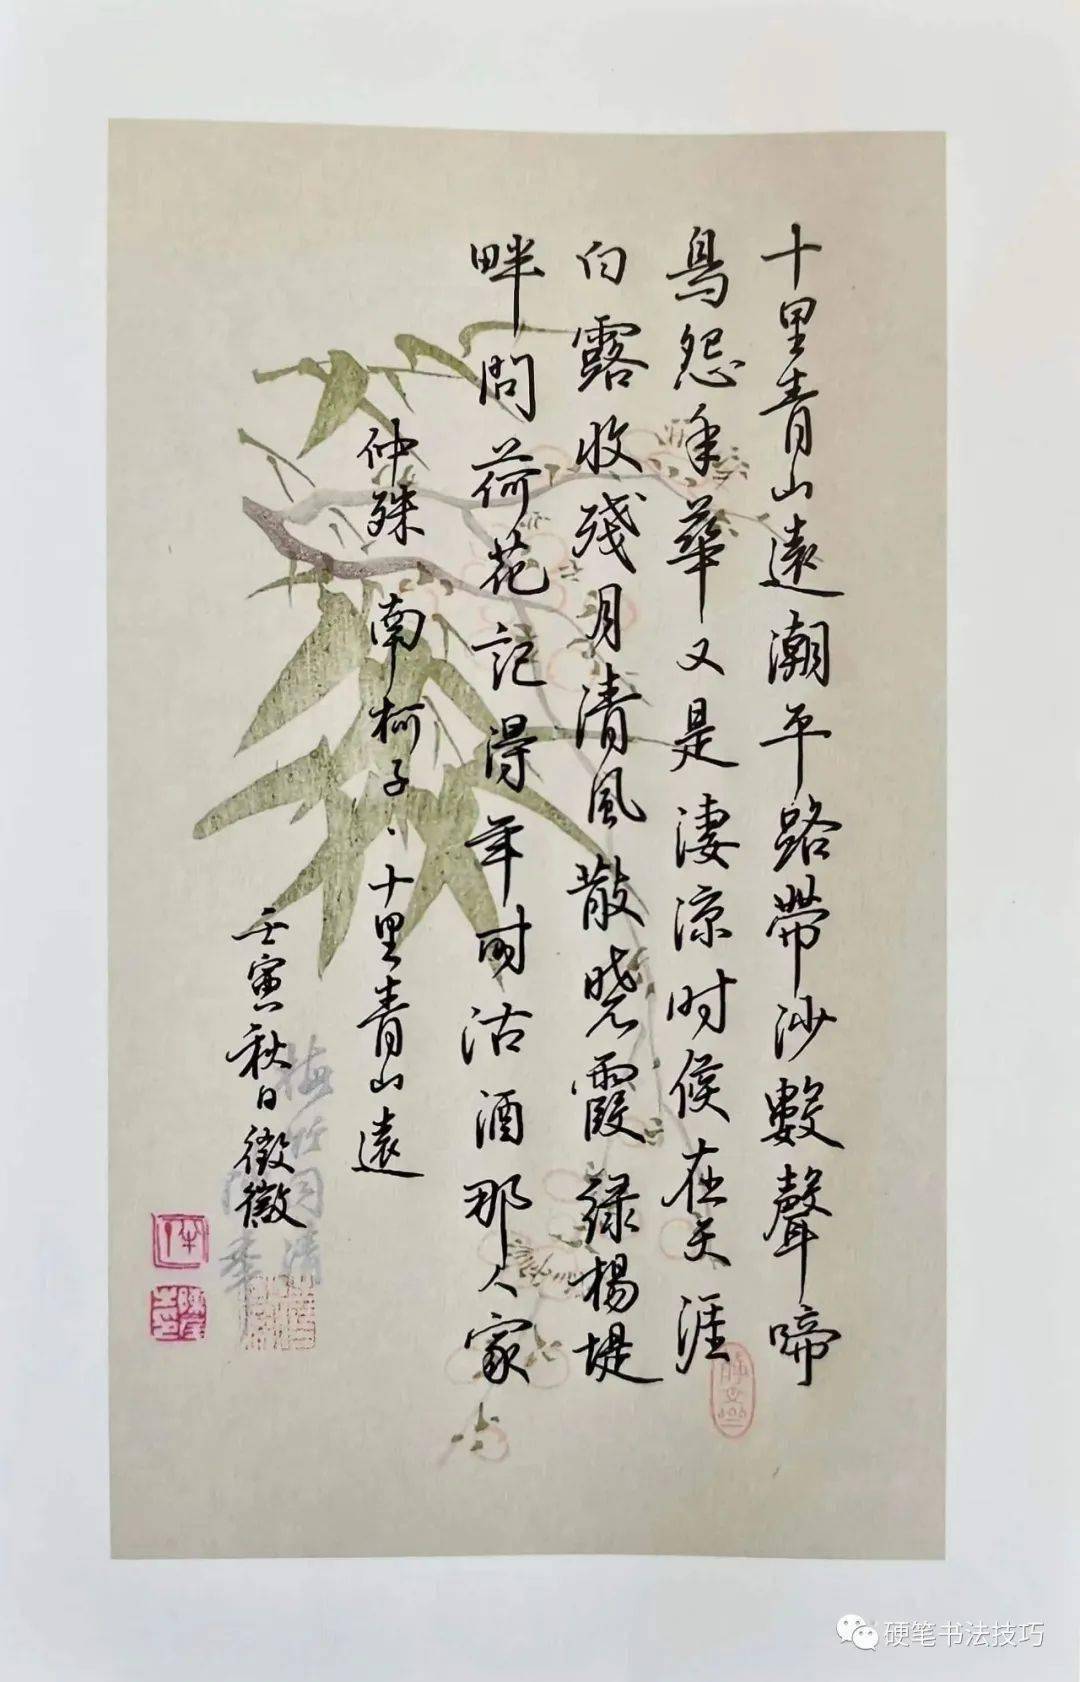 十里青山遠潮平路帶沙數聲啼
鳥怨年華又是淒涼时候在天涯
白露收殘月清風散曉霞緑楊堤
畔問荷花記得年时沽酒那人家
仲殊 南柯子·十里青山遠
壬寅秋日徵徵
梅竹同清
硬笔书法技巧